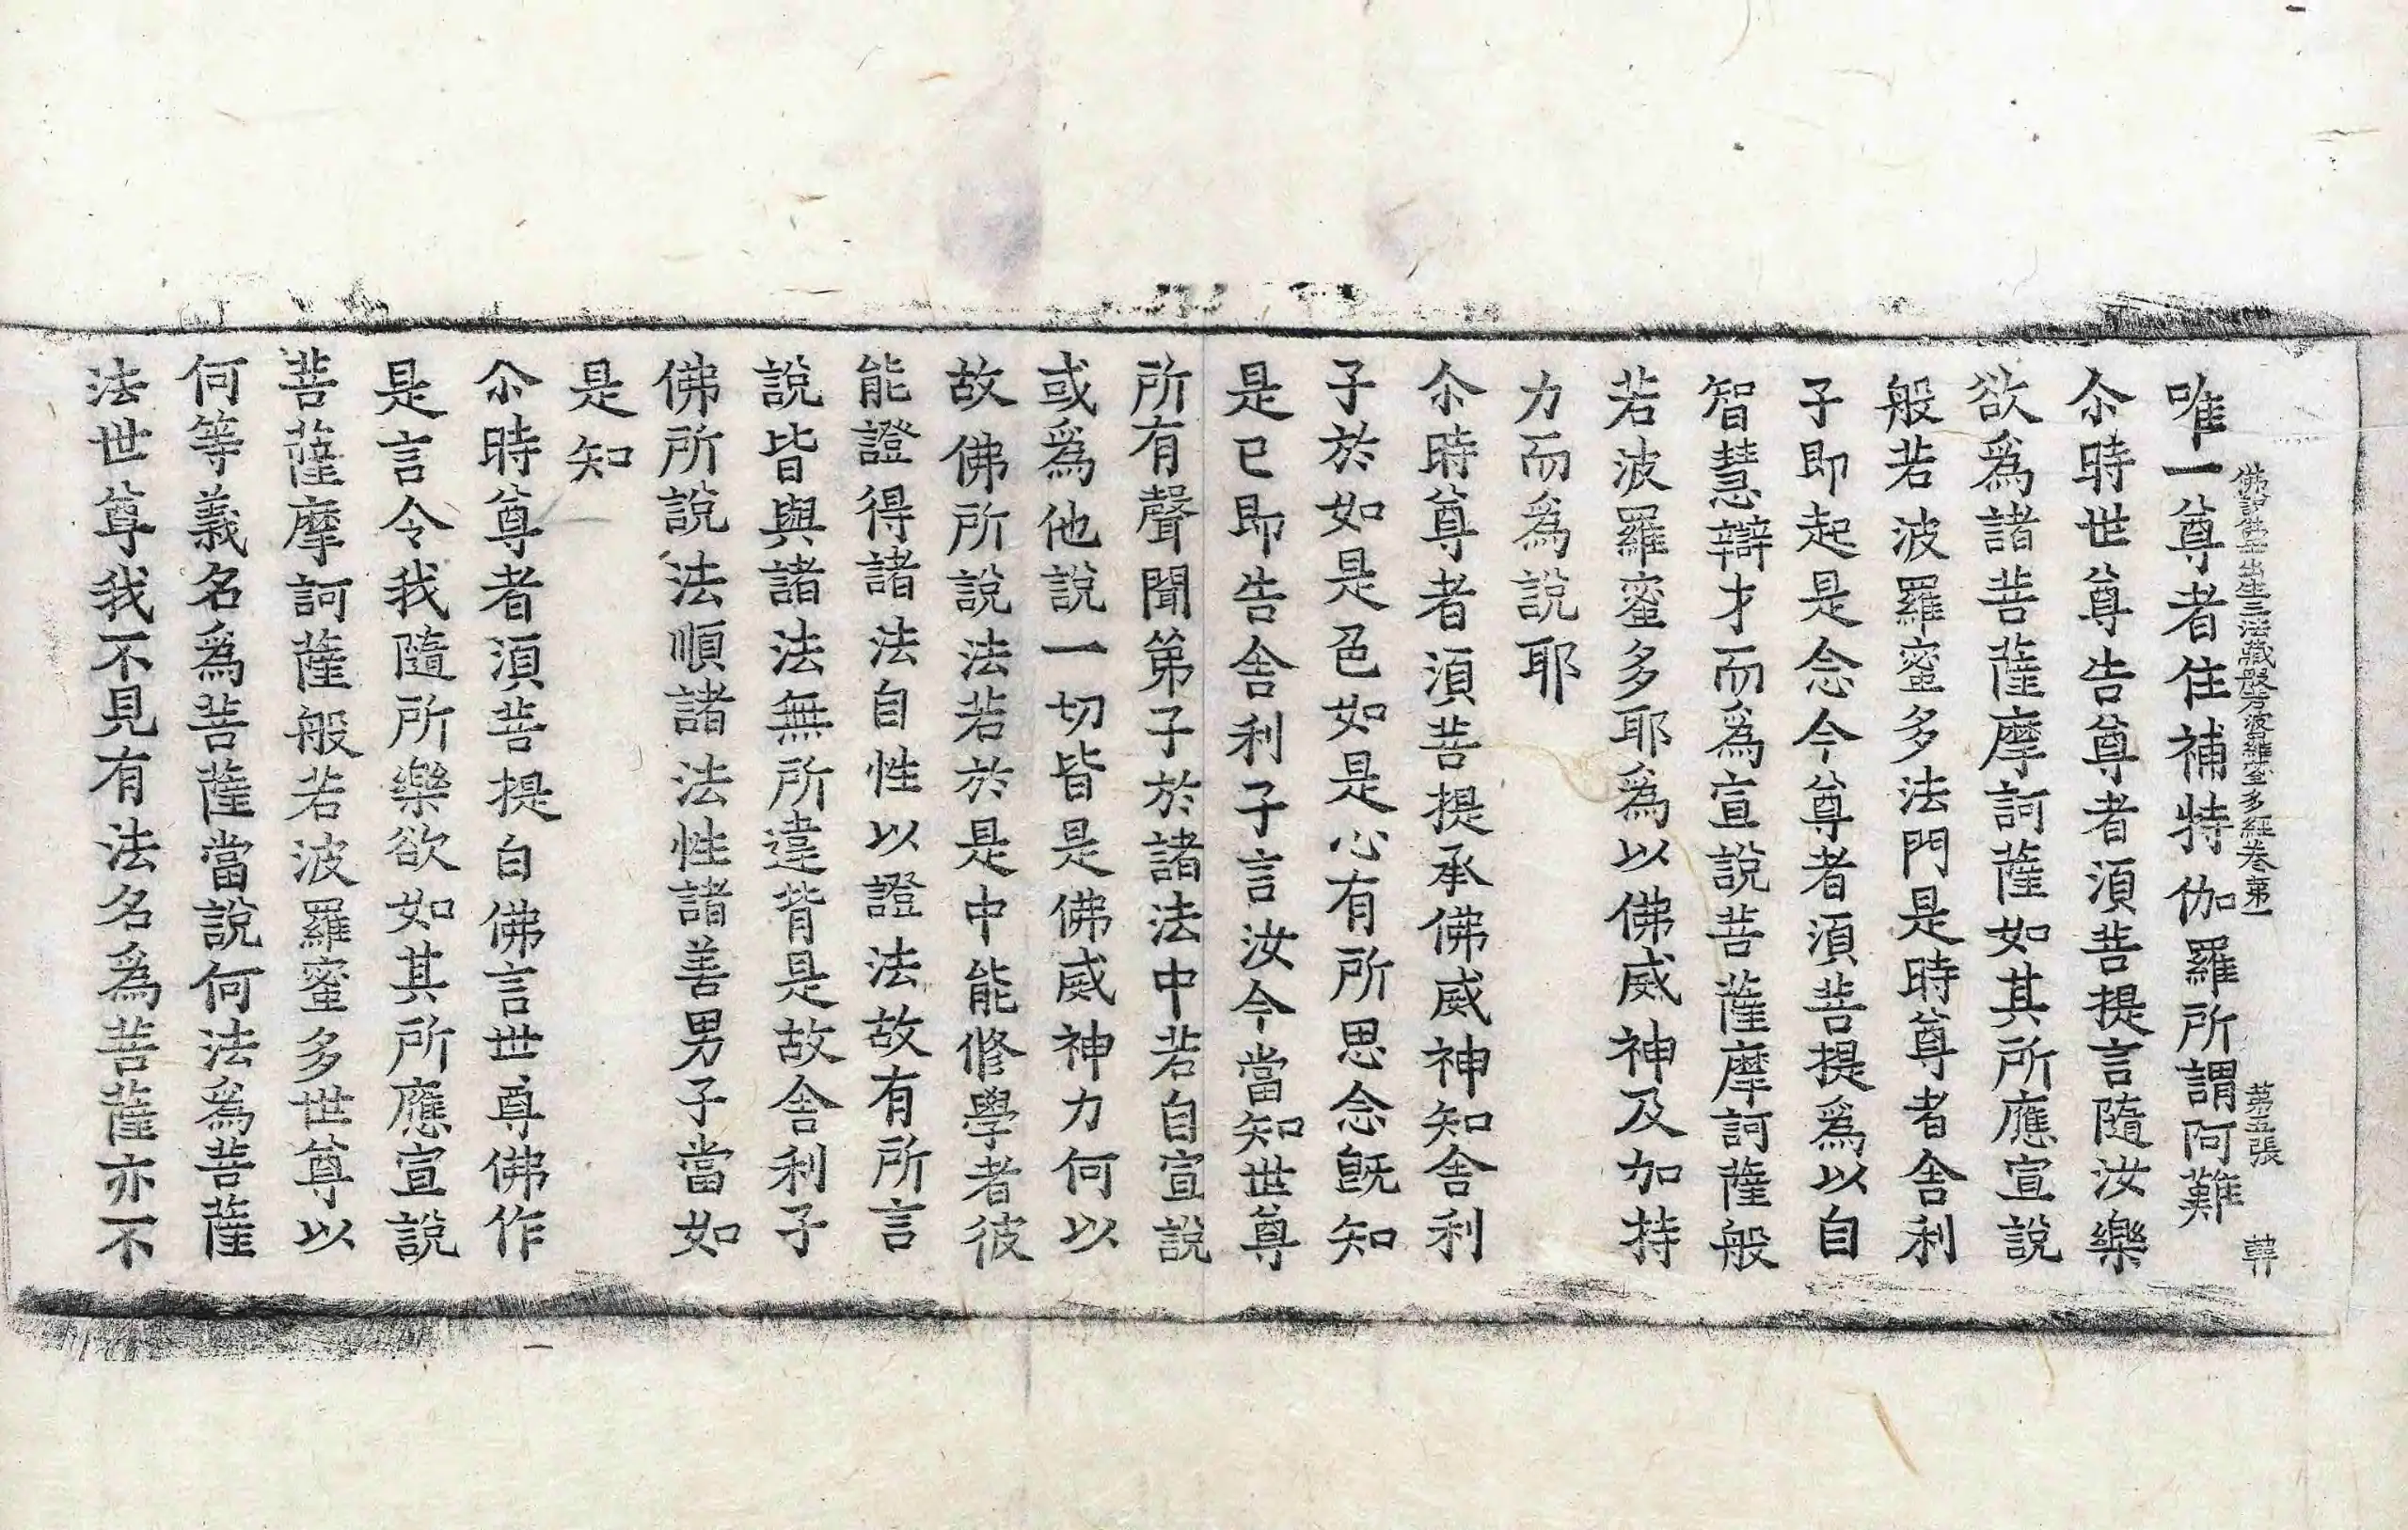 佛說佛母出生三法藏般若波羅蜜多經卷第一 第五張 韓
唯一尊者住補特伽羅所謂阿難
尒時世尊告尊者須菩提言隨汝樂
欲爲諸菩薩摩訶薩如其所應宣說
般若波羅蜜多法門是時尊者舍利
子即起是念今尊者須菩提爲以自
智慧辯才而爲宣說菩薩摩訶薩般
若波羅蜜多耶爲以佛威神及加持
力而爲說耶
尒時尊者須菩提承佛威神知舍利
子於如是色如是心有所思念旣知
是已即告舍利子言汝今當知世尊
所有聲聞第子於諸法中若自宣說
或爲他說一切皆是佛威神力何以
故佛所說法若於是中能修學者彼
能證得諸法自性以證法故有所言
說皆與諸法無所違背是故舍利子
佛所說法順諸法性諸善男子當如
是知
尒時尊者須菩提白佛言世尊佛作
是言令我隨所樂欲如其所應宣說
菩薩摩訶薩般若波羅蜜多世尊以
何等義名爲菩薩當說何法爲菩薩
法世尊我不見有法名爲菩薩亦不